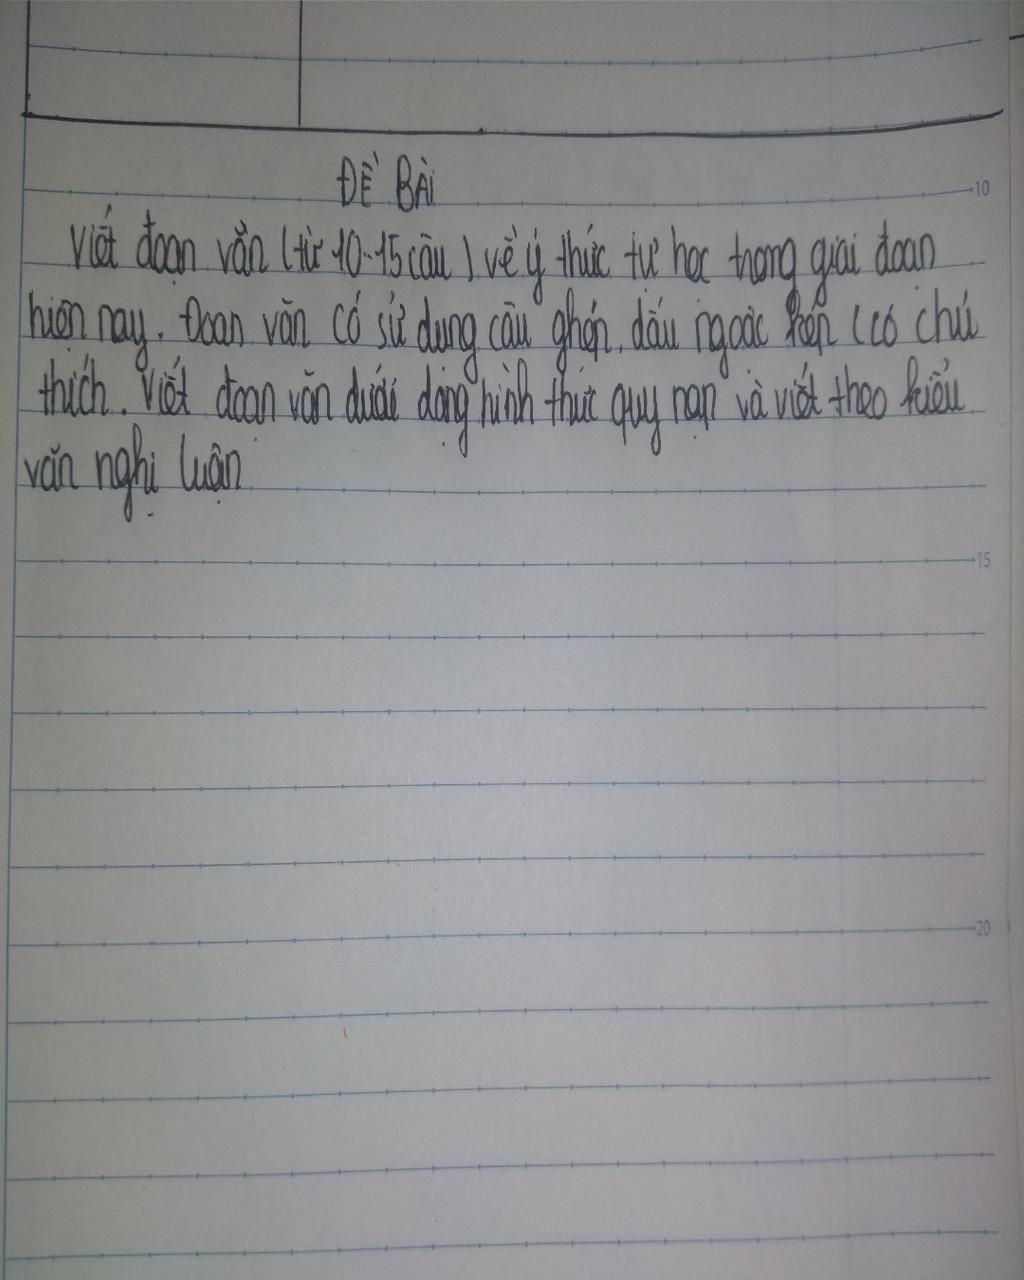 10
ĐỀ BÀI
Viết đoạn văn (từ 10-15 câu) về ý thức tự học trong giai đoạn
hiện nay. Đoạn văn có sử dụng câu ghép, dấu ngoặc kép (có chú
thích. Viết đoạn văn dưới dạng hình thức quy nạp và viết theo kiểu
văn nghị luận
15
20